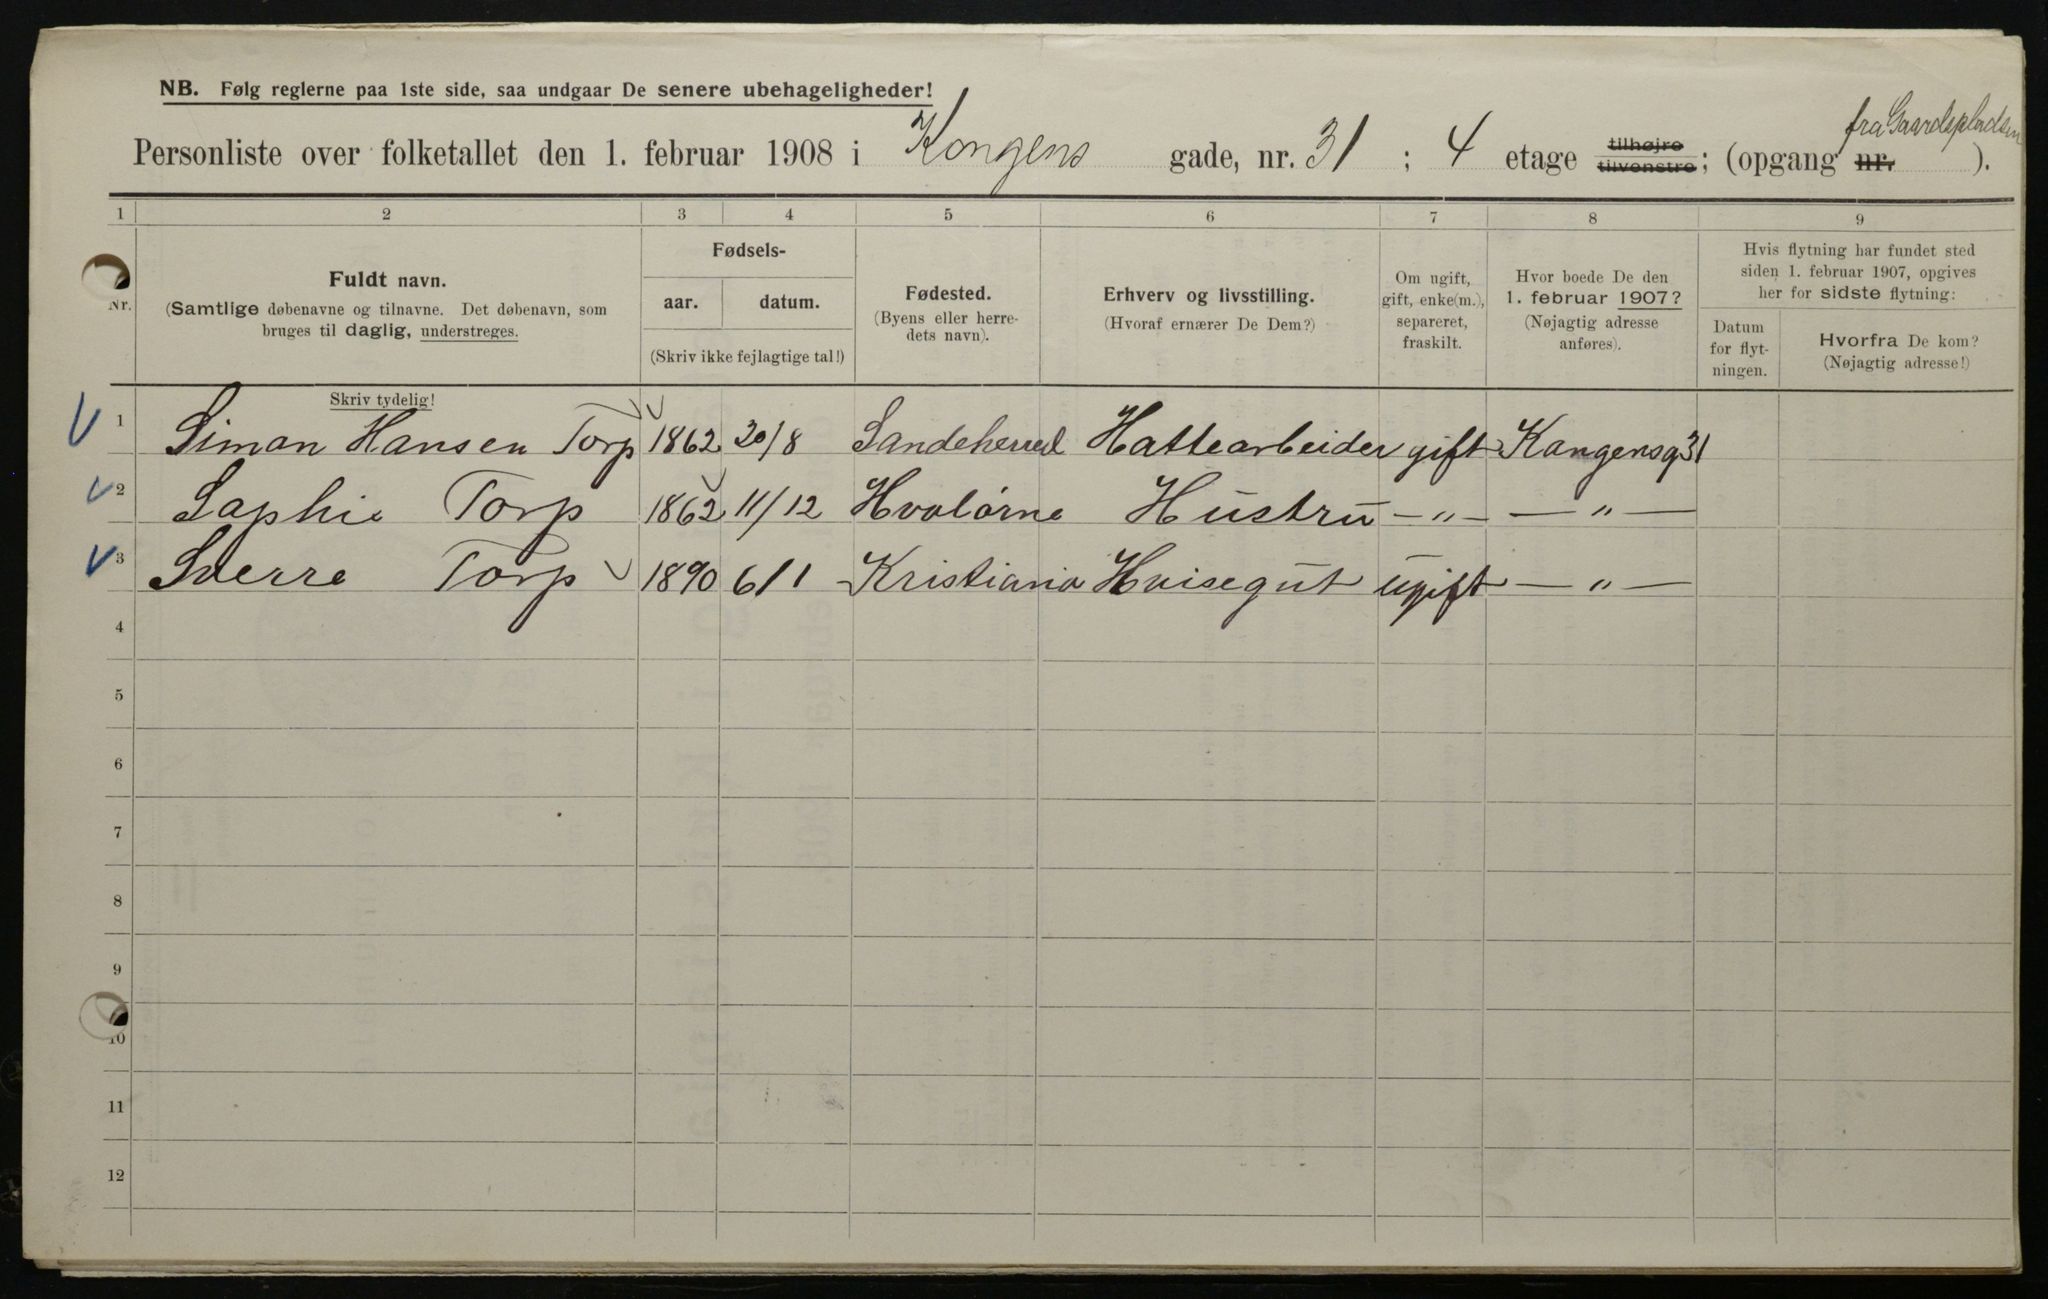 NB. Følg reglerne paa 1ste side, saa undgaar De senere ubehageligheder!
Personliste over folketallet den 1. februar 1908 i Kongens gade, nr. 31 ; 4 etage tilhøjre tilvenstre; (opgang nr. fra Gaardspladsen ).
1 2 3 4 5 6 7 8 9
Nr.
Fuldt navn.
(Samtlige døbenavne og tilnavne. Det døbenavn, som
bruges til daglig, understreges.
Skriv tydelig!
Fødsels-
aar. datum.
(Skriv ikke fejlagtige tal!)
Fødested.
(Byens eller herre-
dets navn).
Erhverv og livsstilling.
(Hvoraf ernærer De Dem?)
Om ugift,
gift, enke(m.),
separeret,
fraskilt.
Hvor boede De den
1. februar 1907?
(Nøjagtig adresse
anføres).
Hvis flytning har fundet sted
siden 1. februar 1907, opgives
her for sidste flytning:
Datum
for flyt-
ningen.
Hvorfra De kom?
(Nøjagtig adresse!)
1 Simon Hansen Torp 1862 20/8 Sandeherred Hattearbeider gift Kongensg 31
2 Sophie Torp 1862 11/12 Hvaløerne Hustru -"- -"-
3 Sverre Torp 1890 6/1 Kristiania Hvisegut ugift -"-
4
5
6
7
8
9
10
11
12